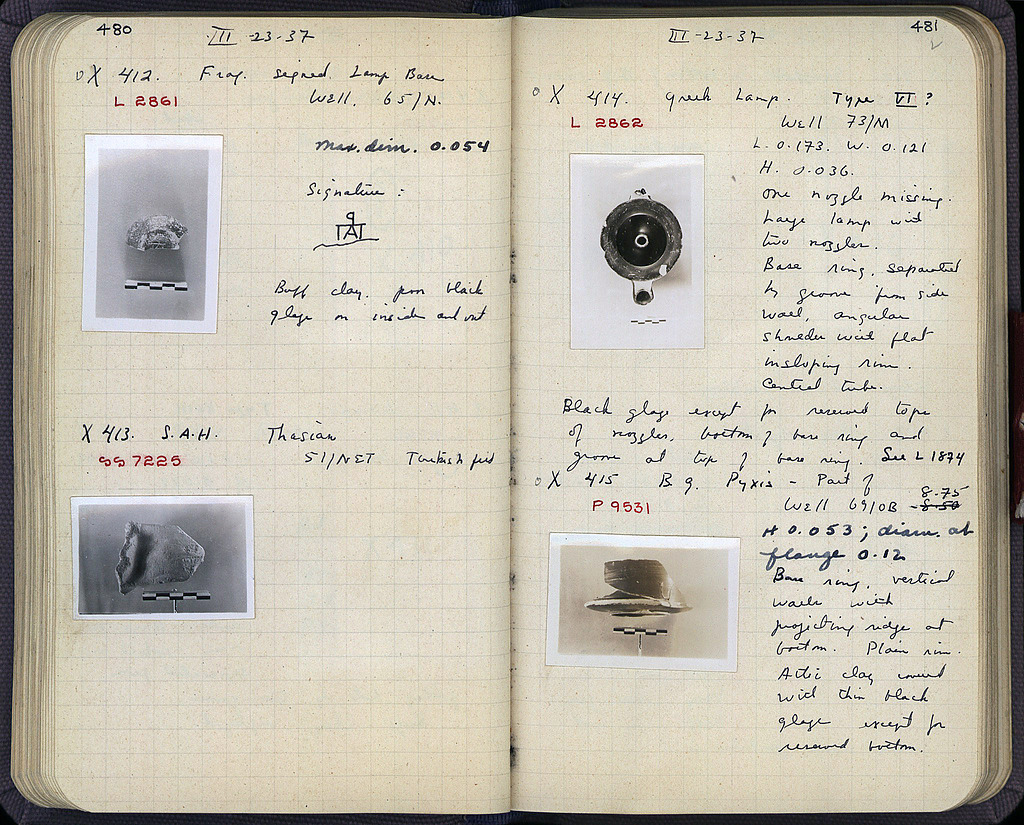 480
III -23-37
X 412. Frag. signed Lamp Base
L 2861
Well. 65/N.
Max. dim. 0.054
Signature :
Buff clay. poor black
glaze on inside and out
X 413. S.A.H. Thasian
SS 7225
51/NET Turkish fill
481
2
III -23-37
X 414. Greek Lamp. Type VI ?
L 2862
Well 73/M
L. 0.173. W. 0.121
H. 0.036.
One nozzle missing.
Large lamp with
two nozzles.
Base ring, separated
by groove from side
wall, angular
shoulder with flat
insloping rim.
Central tube.
Black glaze except for reserved tops
of nozzles, bottom of base ring and
groove at top of base ring. See L 1874
X 415 B.g. Pyxis - Part of
P 9531
8.75
Well 69/OB - 8.50
H 0.053; diam. at
flange 0.12
Base ring, vertical
walls with
projecting ridge at
bottom. Plain rim.
Attic clay covered
with thin black
glaze except for
reserved bottom.